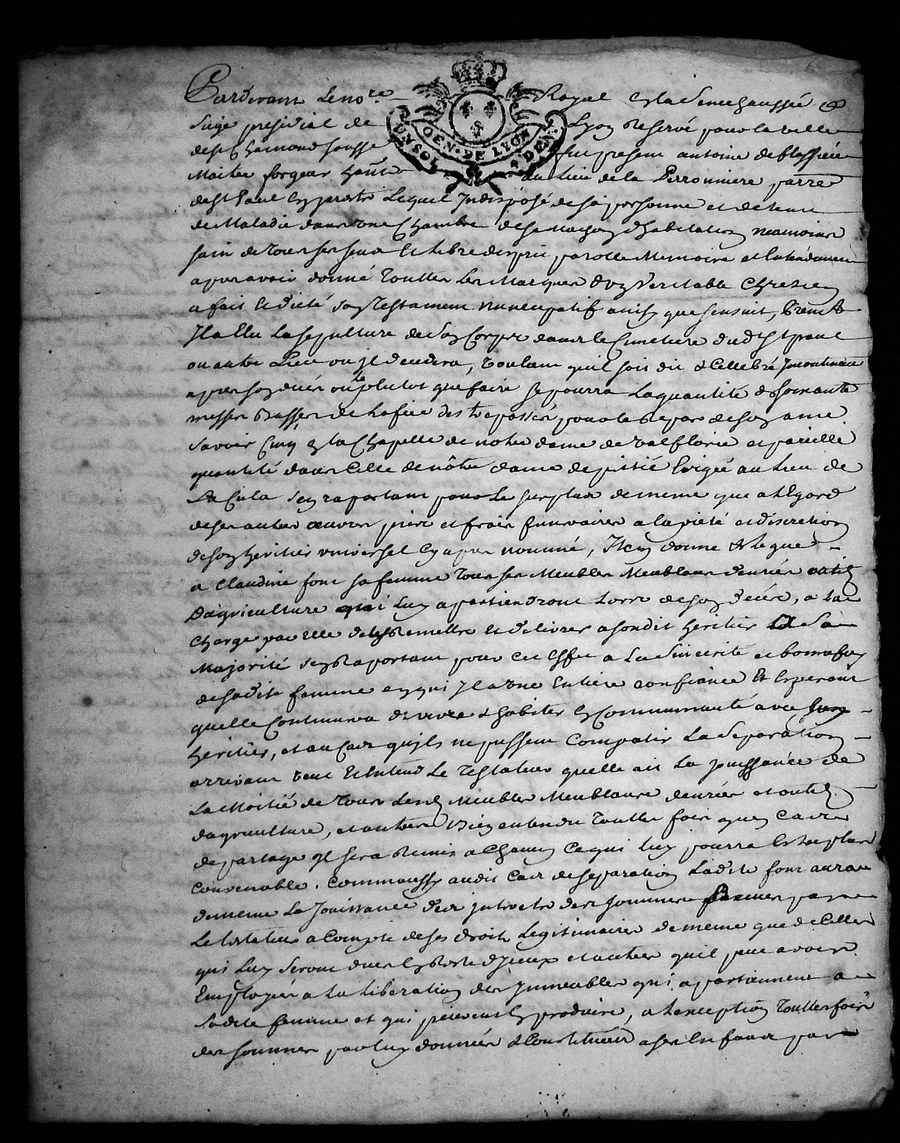 Pardevant le no.re Royal en la Senechaussée &
Siege presidial de Lyon Reservé pour la ville
GEN. DE LYON
UN SOL 4 DEN.
de St Chamond soussé fut present antoine
Maitre forgeur hant au Lieu de la Perronniere parre
de St Paul en jarest Lequel Indisposé de sa personne et detenu
de Maladie dans une Chambre de sa Maison d'habitation neamoins
sain de tous ses sens et libre d'esprit parolle Memoire et Entendement
apres avoir donné Touttes les Marques d'un Veritable Chretien
a fait et dicté son Testament nuncupatif ainsy que sensuit,
Il a Elu la sepulture de son Corps dans le Cimetiere dudt St paul
ou autre Lieu ou Il decedera, Voulant qu'il soit dit & Cellebré Incontinant
apres son decés ou le plutot que faire se pourra La quantité de soixante
messes basses de l'office des trepassés pour le repos de son ame
Savoir Cinq en la Chapelle de notre dame de Valfleurie et pareille
quantité dans Celle de nôtre dame de pitié Erigée au Lieu de
La Cula s'en raportant pour le surplus de meme qu'a l'Egard
de ses autres œuvres pies et frais funeraires a la pieté et discretion
de son heritier universel cy apres nommé, Item donne et legue
a Claudine font sa femme tous ses Meubles Meublans denrées outils
D'agriculture qui luy apartiendront Lors de son decés, a la
Charge par elle de les Remettre et delivrer a sondit heritier a Sa
Majorité s'en Raportant pour cet Effet a La Sincerité et bonne foy
de sadite femme en qui Il a une Entiere confiance Et Esperant
quelle Continuera de vivre & habiter en Communauté avec son
heritier, et au Cas qu'ils ne pussent Compatir La Separation
arrivant veut Et Entend Le Testateur quelle ait La Jouissance de
La Moitié de tous lesd Meubles Meublans denrées et outils
dagriculture, et autres Bien entendu Touttes fois qu'en Cas
de partage Il sera Remis a Chacun Ce qui luy pourra Etre plus
Convenable. Comme aussy audit Cas de Separation Ladite font aura
de meme La Jouissance des Interets des sommes payées par
Le testateur a Compte de ses droits Legitimaires de meme que de Celles
qui luy seront dues En Reste d'Iceux et autres quil peut avoir
Employées a La Liberation des Immeubles qui apartiennent a
sadite femme et qui peuvent En produire, a l'exception Touttes fois
des sommes par luy données & Constituées a ses Enfants par